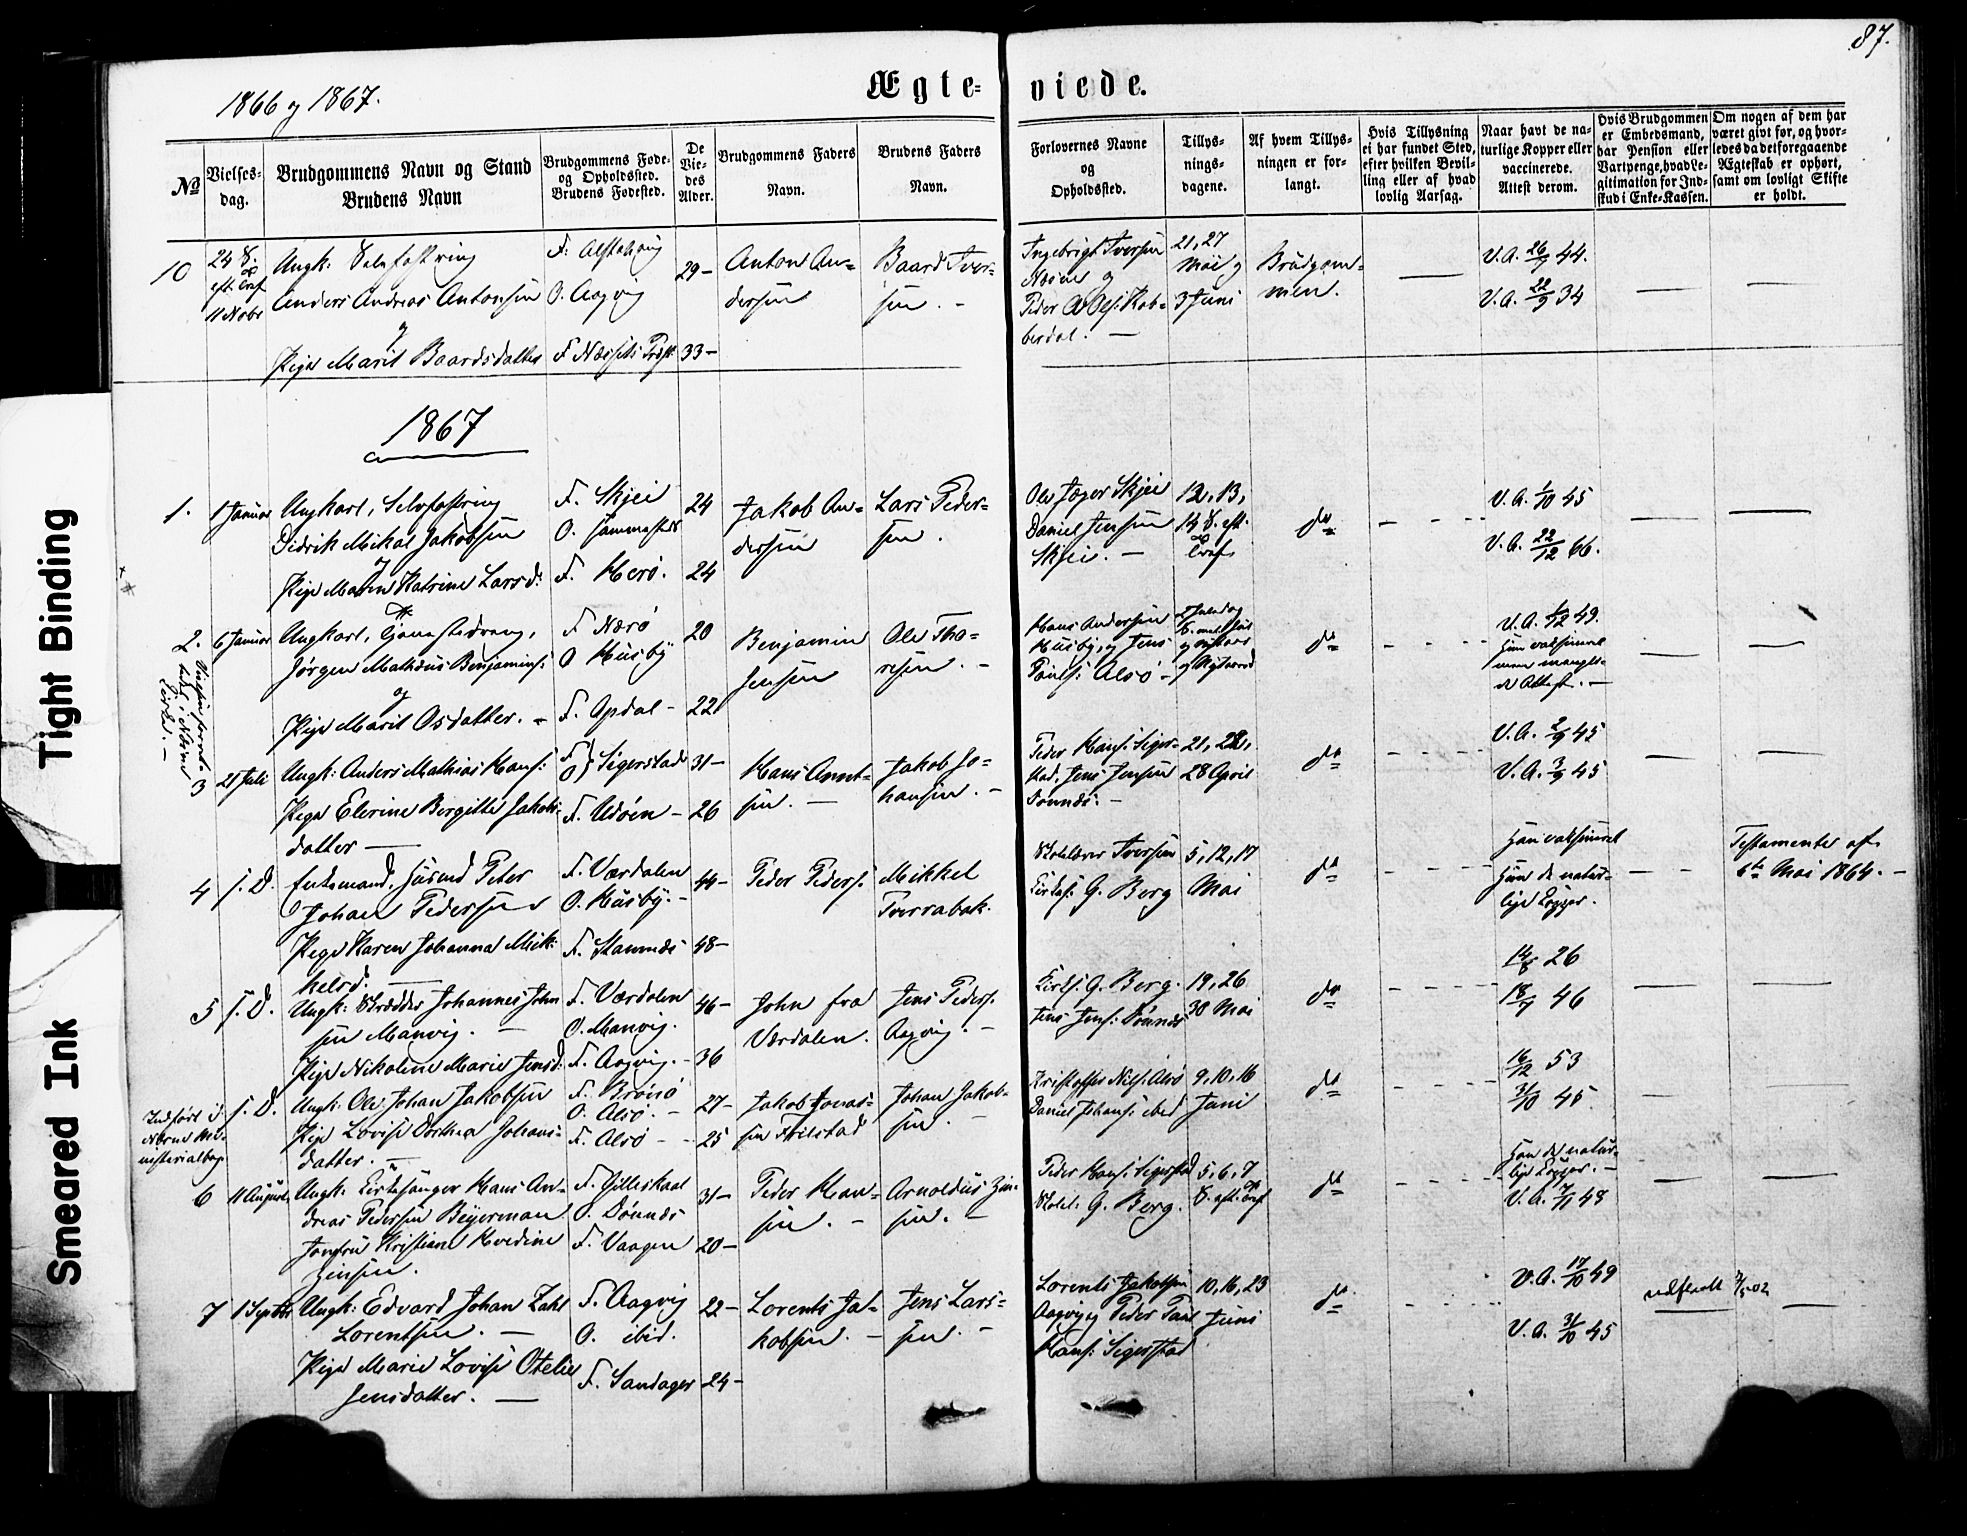 87.
1866 og 1867.
Ægte- viede.
№
Vielses-
dag.
Brudgommens Navn og Stand
Brudens Navn
Brudgommens Føde-
og Opholdssted.
Brudens Fødested.
De
Vie-
des
Alder.
Brudgommens Faders
Navn.
Brudens Faders
Navn.
Forlovernes Navne
og
Opholdssted.
Tillys-
nings-
dagene.
Af hvem Tillys-
ningen er for-
langt.
Hvis Tillysning
ei har fundet Sted,
efter hvilken Bevil-
ling eller af hvad
lovlig Aarsag.
Naar havt de na-
turlige Kopper eller
vaccinerede.
Attest derom.
Hvis Brudgommen
er Embedsmand,
har Pension eller
Vartpenge, hvad Le-
gitimation for Ind-
skud i Enke-Kassen.
Om nogen af dem har
været givt før, og hvor-
ledes da det foregaaende
Ægteskab er ophørt,
samt om lovligt Skifte
er holdt.
10
24 S.
eft. Tref
11 Nobr
Ungk: Selvfostring
Anders Andreas Antonsen
og
Pige Marit Baardsdatter
F. Alstahoug
O. Aagvig
F. Næssets Præst
29 -
33 -
Anton An-
dersen
Baard Iver-
sen. -
Ingebrigt Iversen
Næsne og
Peder A Ols: Kob-
berdal. -
21, 27
Mai og
3 Juni
Brudgom-
men.
V. A. 26/7 44.
V. A. 22/9 34
1867
1.
1 Januar
Ungkarl, Selvfostring
Didrik Mikal Jakobsen
og
Pige Maren Katrine Larsd:
F. Skjei
O. sammesteds
F. Herö.
24
24
Jakob An-
dersen
Lars Peder-
sen.
Ole Jæger Skjei
Daniel Jensen
Skjei. -
12, 13,
14 S. eft.
Tref.
do
V. A. 1/10 45
V. A. 22/12 66.
2.
6 Januar
Ungkarl, Tjenestedreng,
Jørgen Mathæus Benjamins:
og
Pige Marit Osdatter. -
F Nærö
O Husby
F. Opdal -
20
22
Benjamin
Jensen
Ole Tho-
resen. -
Hans Andersen
Husby, og Jens
Pauls: Alsö -
do
V. A. 1/12 49.
Hun vaksineret
men mangle-
de Attest. -
3
21 Juli
Ungk: Anders Mathias Hans:
Pige Elerine Bergitte Jakobs-
datter -
F
O } Sigerstad
F. Udöen -
31 -
26
Hans Arnt-
sen. -
Jakob Jo-
hansen. -
Peder Hans: Siger-
stad, Jens Jensen
Dönnæs. -
21, 22,
28 April
do
V. A. 2/9 45
V. A. 3/9 45
4
s. D.
Enkemand, Husmd Peter
Johan Pedersen
Pige Karen Johanna Mik-
kelsd. -
F. Værdalen
O. Husby. -
F. Stamnæs
44 -
48 -
Peder Peders:
Mikkel
Tverrabak.
Skolelærer Iversen
Kirkes: G. Berg
5, 12, 17
Mai
do
Han vaksineret
Hun de natur-
lige Kopper.
Testamenter af
6te Mai 1864. -
5
s. D.
Ungk: Skrædder Johannes John
sen Manvig. -
Pige Nikoline Marie Jensd:
F. Værdalen
O. Manvig.
F. Aagvig. -
46 -
36
John fra
Værdalen.
Jens Peders.
Aagvig. -
Kirkes. G. Berg.
Jens Jens: Dönnæs
19, 26
30 Mai
do
14/8 26
18/7 46
Indført i
Næsne Mi-
nisterialbog.
s. D.
Ungk: Ole Johan Jakobsen
Pige Lovise Dorthea Johans-
datter. -
F. Brönö
O. Alsö. -
F. Alsö - -
27 -
25
Jakob Jonas-
sen Frilstad
Johan Jakob-
sen.
Kristoffer Nils: Alsö
Daniel Johans: ibid
9, 10, 16
Juni
do
16/12 53
31/10 45.
6
11 August
Ungk: Kirkesanger Hans An-
dreas Pedersen Beijerman
Jomfru Kristiane Hvedine
Zeusen.
F. Gilleskaal
O. Dönnæs
F. Vaagen
31 -
20 -
Peder Han-
sen. -
Arnoldus Zeu-
sen. -
Peder Hans: Sigerstad
Skolel. G. Berg.
5, 6, 7
S. eft. Tref
do
Han de natur-
lige Kopper. -
V. A. 7/11 48
7
1 Septbr
Ungk: Edvard Johan Zakl
Lorentsen. -
Pige Marie Lovise Otelie
Jensdatter. -
F. Aagvig
O. ibid.
F. Sandager
22 -
24 -
Lorents Ja-
kobsen. -
Jens Lars-
sen. -
Lorents Jakobsen
Aagvig og Peder Paul
Hans: Sigerstad
10, 16, 23
Juni
do
V. A. 17/10 49
V. A. 31/10 45
udstedt 3/5 02
Tight Binding
Smeared Ink